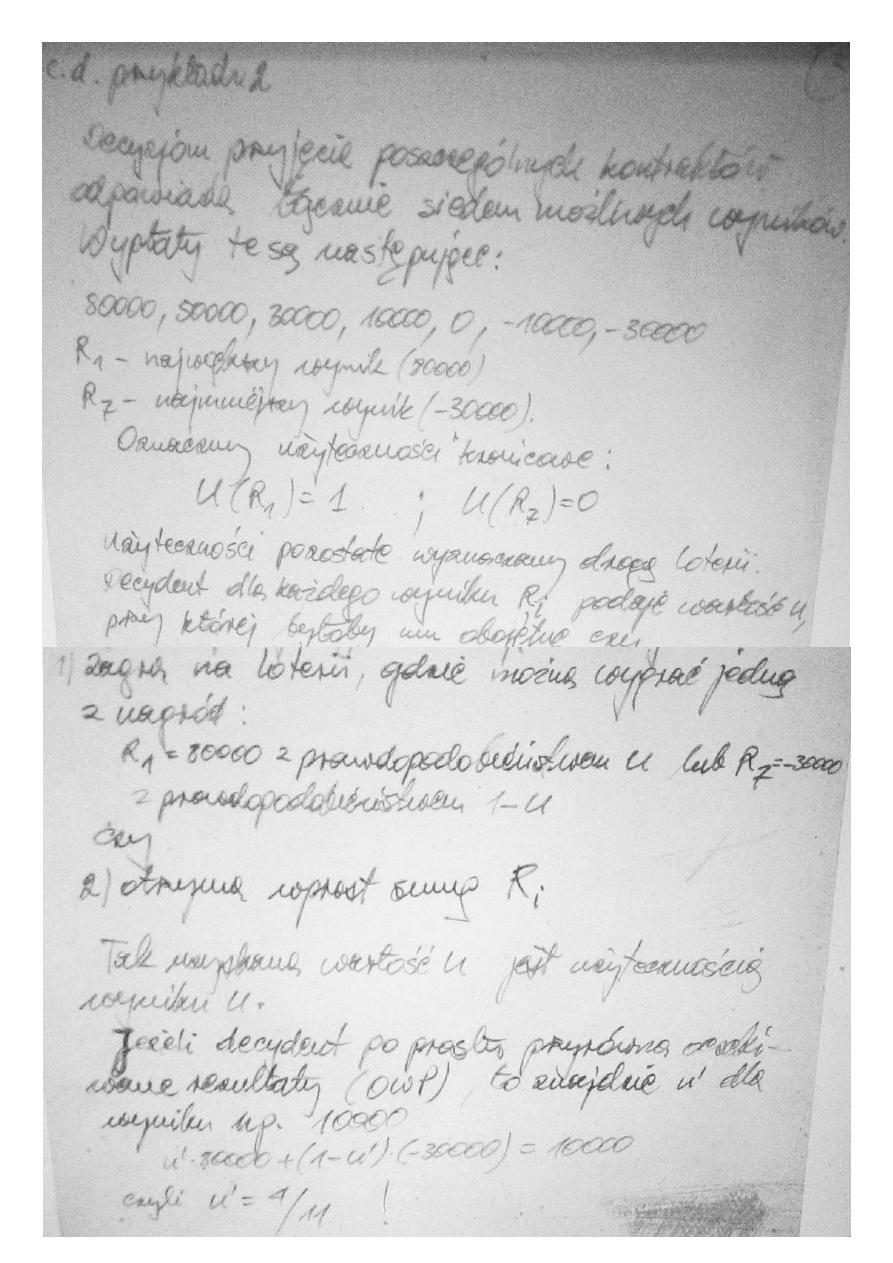 c.d. przykładu 2
Decyzjom przyjęcia poszczególnych kontraktów
odpowiada łącznie siedem możliwych wyników.
Wypłaty te są następujące:
80000, 50000, 30000, 10000, 0, -10000, -30000
R1 - największy wynik (80000)
R7 - najmniejszy wynik (-30000).
Oznaczamy użyteczności krańcowe:
U(R1)=1 ; U(R7)=0
Użyteczności pozostałe wyznaczamy drogą loterii.
Decydent dla każdego wyniku Ri podaje wartość u,
przy której byłoby mu obojętne czy
1) zagra na loterii, gdzie można wygrać jedną
z nagród:
R1 = 80000 z prawdopodobieństwem u lub R7=-30000
z prawdopodobieństwem 1-u
czy
2) otrzyma wprost sumę Ri
Tak uzyskana wartość u jest użytecznością
wyniku u.
Jeżeli decydent po prostu przyrówna oczeki-
wane rezultaty (OWP), to znajdzie u' dla
wyniku np. 10000
u'·80000+(1-u')·(-30000) = 10000
czyli u' = 4/11 !